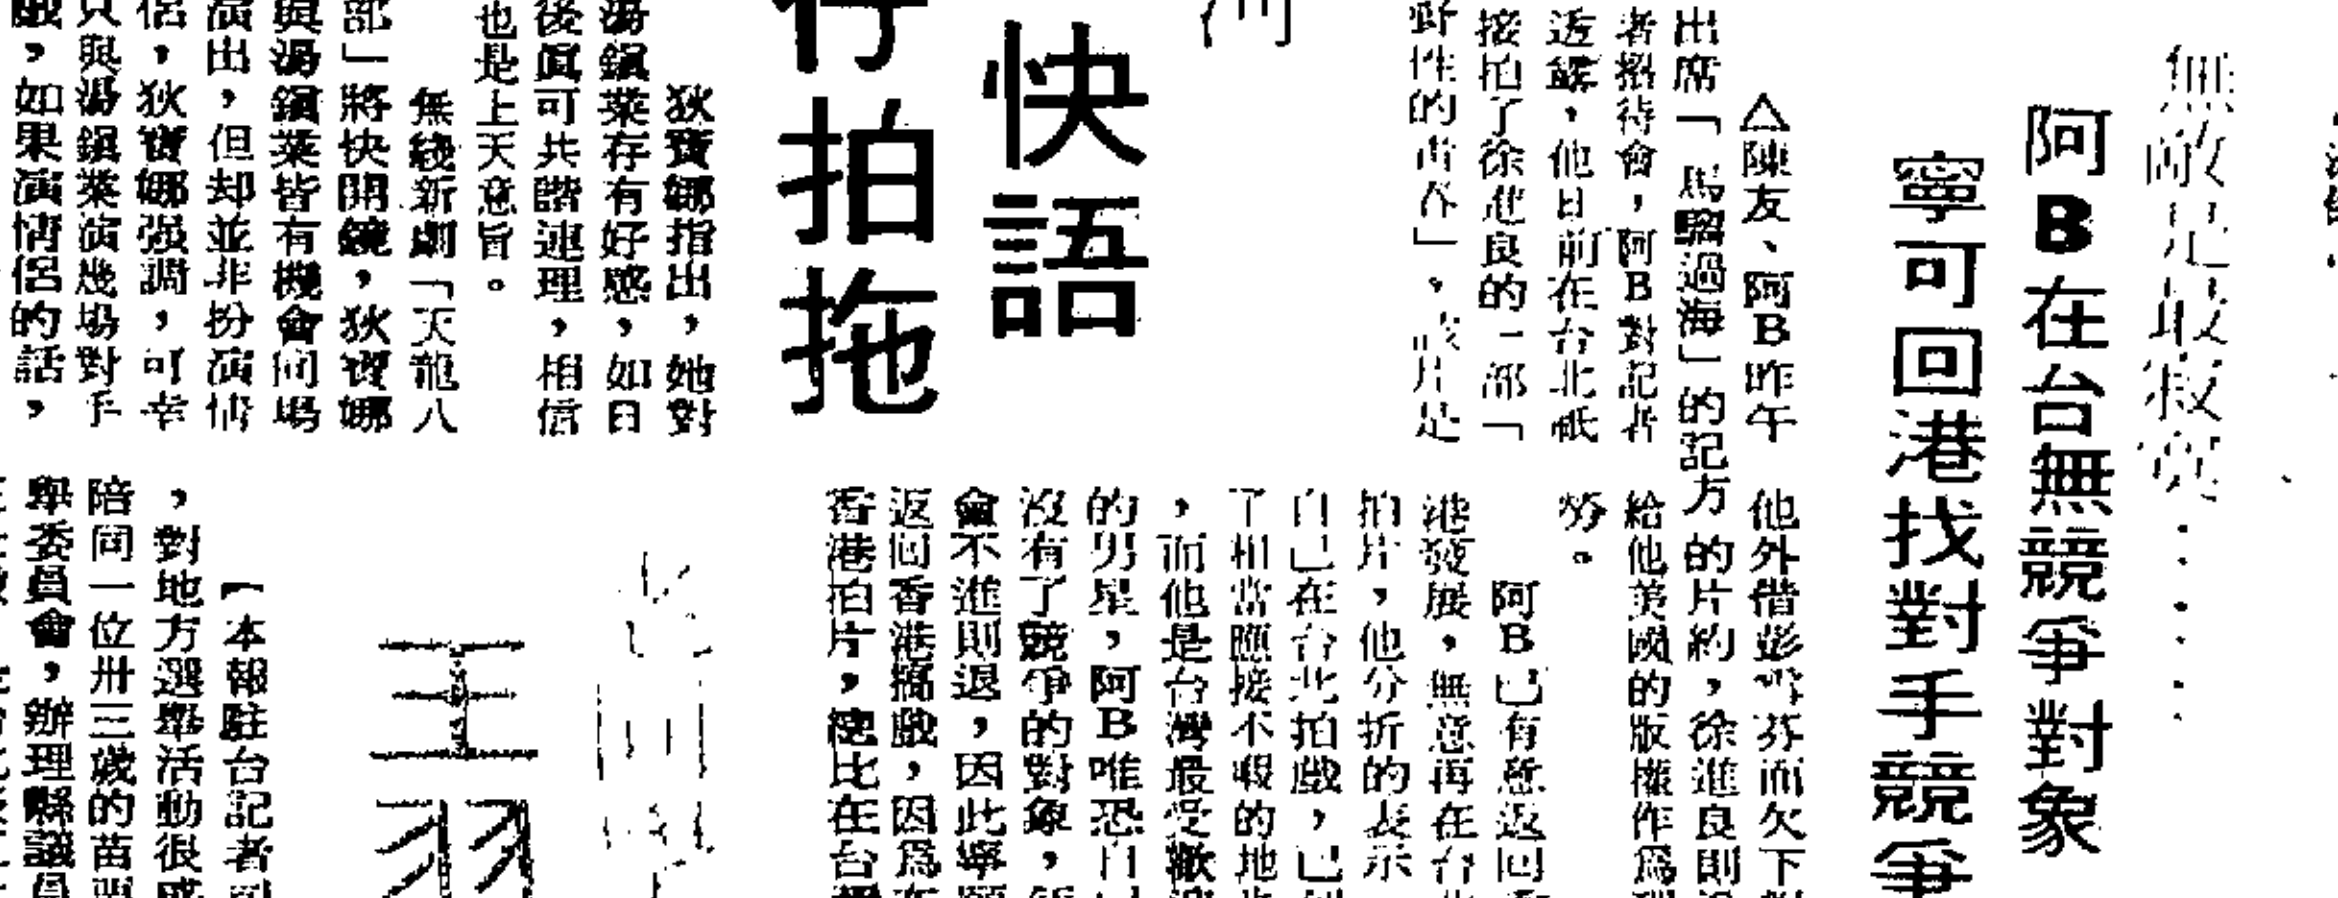 無敵是最寂寞……
阿B在台無競爭對象
寧可回港找對手競爭
△陳友、阿B昨午
出席「馬騮過海」的記
者招待會，阿B對記者
透露，他日前在台北祇
接拍了徐進良的一部「
野性的青春」，該片是
他外借彭雪芬而欠下
方的片約，徐進良則
給他美國的版權作爲
勞。
阿B已有意返回
港發展，無意再在台
拍片，他分折的表示
自己在台北拍戲，已
了相當應接不暇的地
，而他是台灣最受歡
的男星，阿B唯恐自
沒有了競爭的對象，
會不進則退，因此寧願
返回香港搞戲，因爲
香港拍片，總比在台
快語
拍拖
狄寶娜指出，她對
湯鎮業存有好感，如日
後眞可共諧連理，相信
也是上天意旨。
無綫新劇「天龍八
部」將快開鏡，狄寶娜
與湯鎮業皆有機會同場
演出，但却並非扮演情
侶，狄寶娜强調，可幸
只與湯鎮業演幾場對手
戲，如果演情侶的話，
王羽
【本報駐台記者
，對地方選舉活動很
陪同一位卅三歲的苗
舉委員會，辦理縣議員